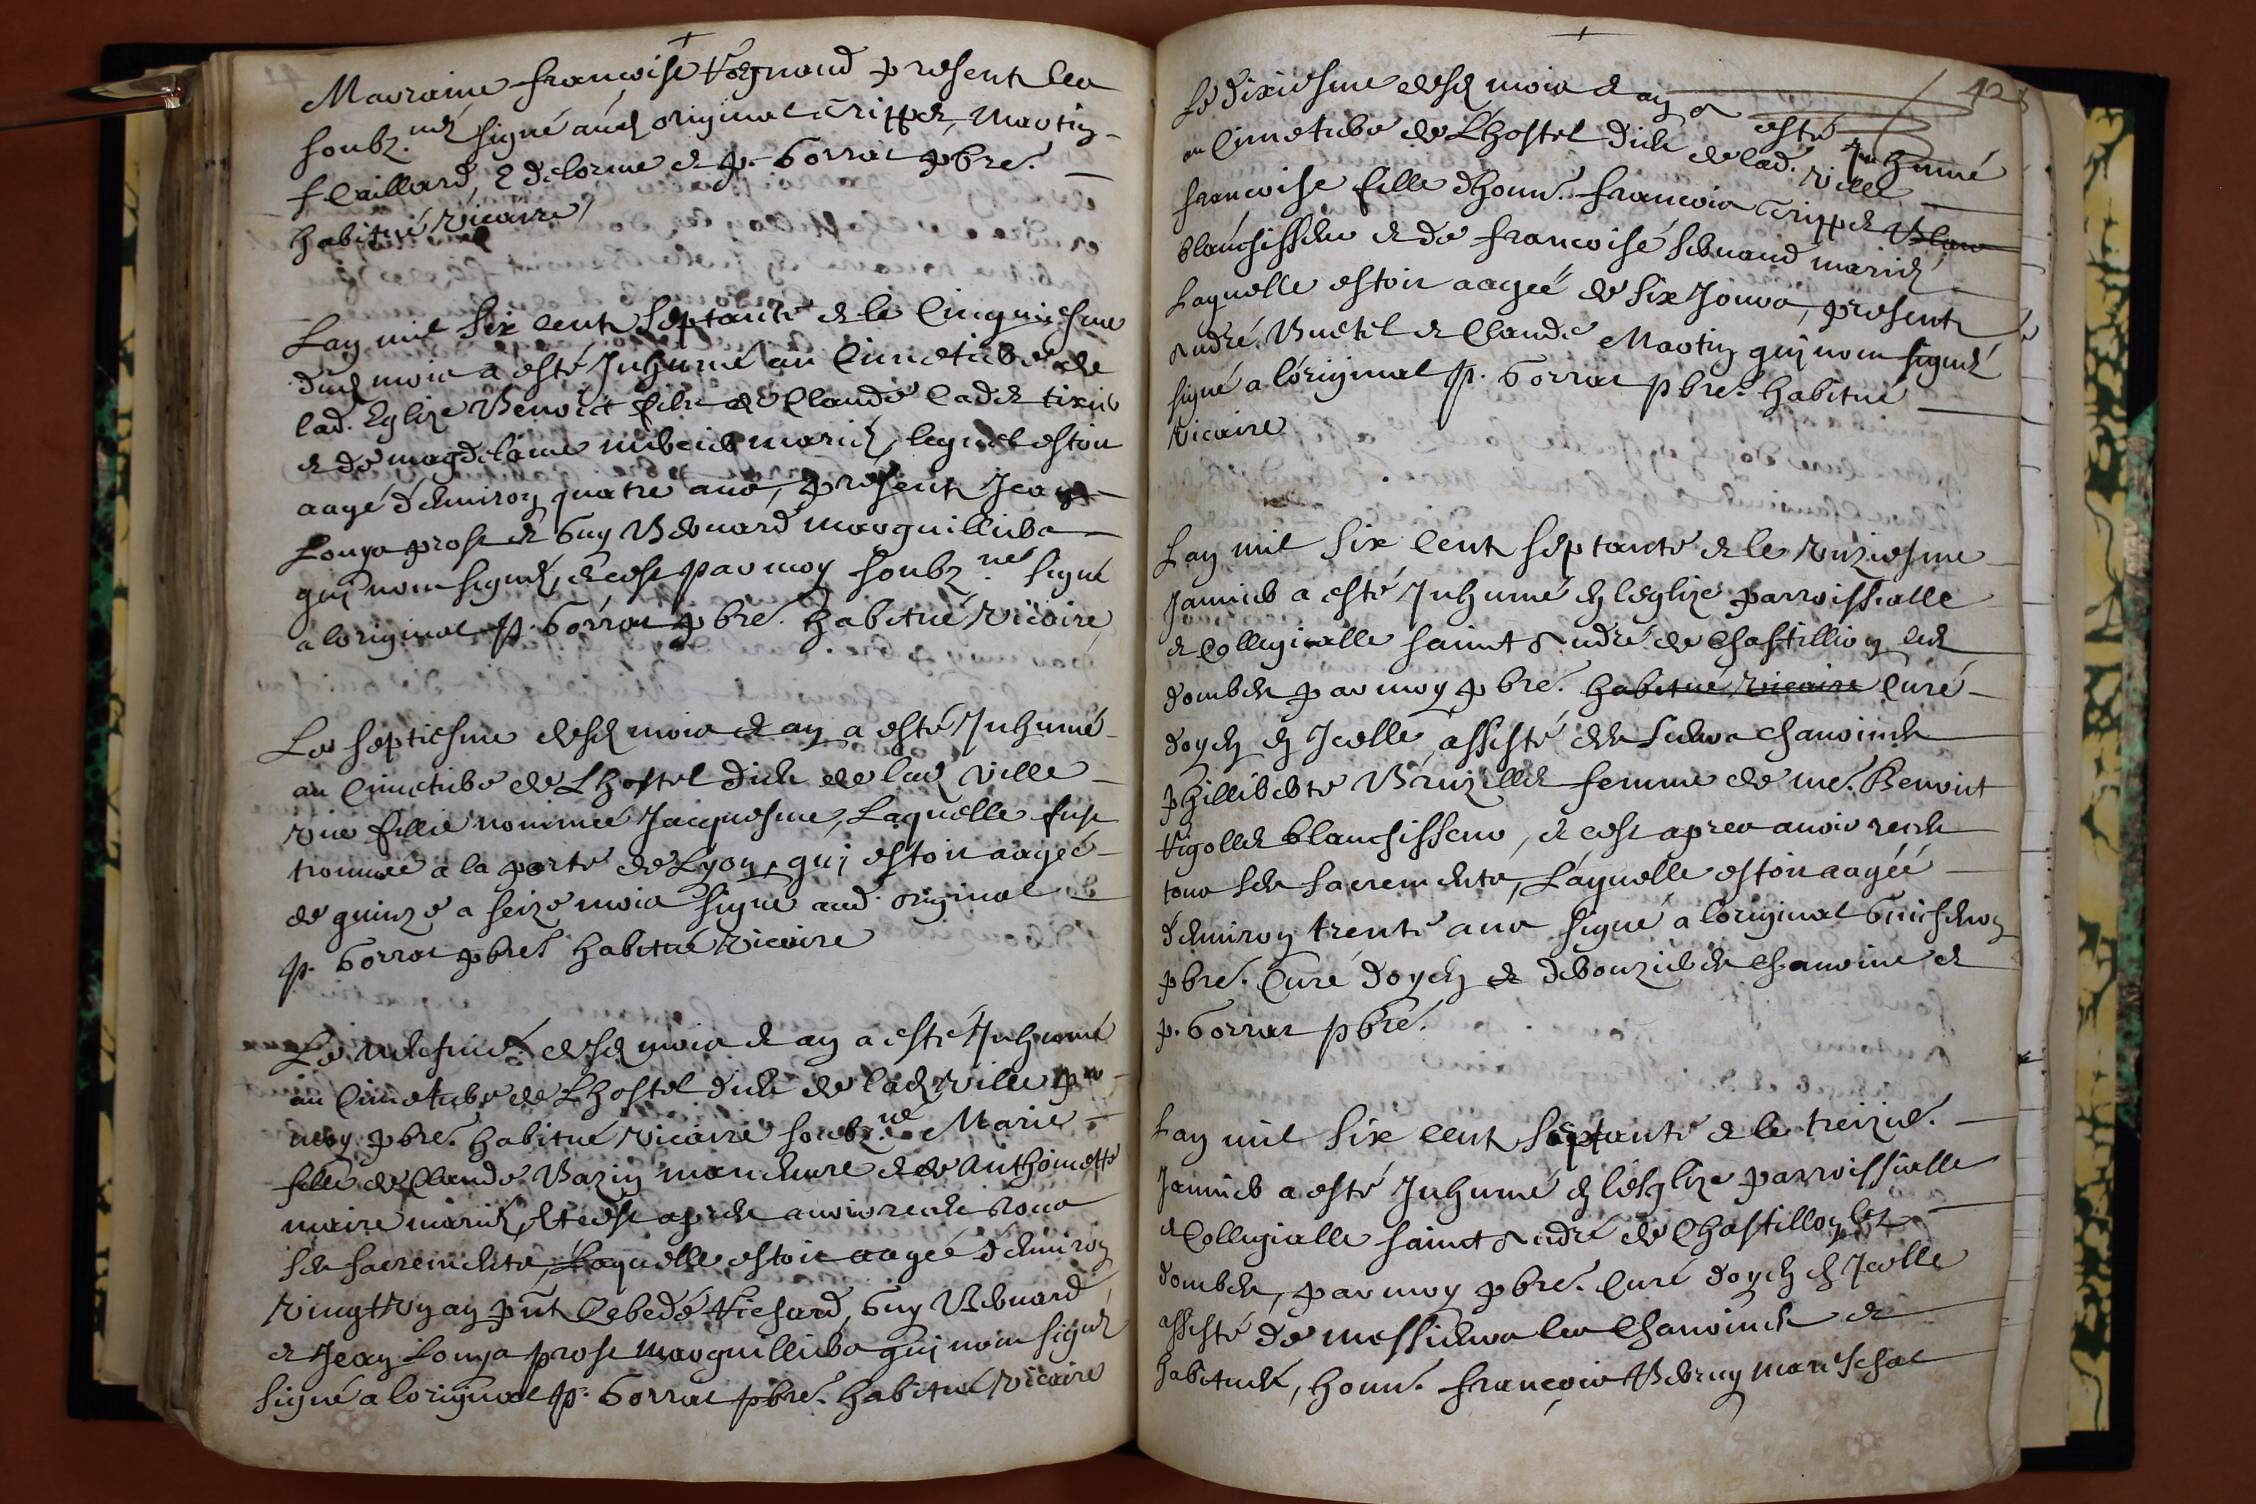 Marraine francoise Reynaud presents les
soubz.nes signé aud original Trippet, Martin
f Caillard, E delorme et p. Gorrat pbre.
habitué vicaire
Lan mil six cents septante et le Cinquiesme
dud mois a esté Inhumé au Cimetiere de
lad. Eglize Benoict fils de Claude Cadet tixier
et de magdelaine mercier mariés, lequel estoit
aagé d'environ quatre ans, presents Jean
Louys prost et Guy Bernard marguilliers
qui nont signés, et cest par moy soubz.né signé
a loriginal p. Gorrat pbre. habitué vicaire
Le septiesme desd mois et an a esté Inhumé
au Cimetiere de Lhostel dieu de lad ville
une fillie nommee Jacquesme, Laquelle fust
trouvée a la porte de Lyon, qui estoit aagée
de quinze a seize mois signé aud. original
p. Gorrat pbre habitué vicaire
Le desd mois et an a esté Inhumé
au Cimetiere de Lhostel dieu de lad ville par
moy pbre. habitué vicaire soubz.né Marie
fille de Claude Bazin et de Anthoinette
maire mariés, Et cest apres avoir receu tous
ses sacrements, Laquelle estoit aagée d'environ
vingt un an pnt Richard, Guy Bernard
et Jean Louys prost marguilliers qui nont signés
signé a loriginal p. Gorrat pbre. habitué vicaire
42
Le dixiesme desd mois et an a esté Inhumé
au Cimetiere de Lhostel dieu de lad. ville
francoise fille d'honn. francois Trippet Blan
blanchisseur et de francoise mariés
Laquelle estoit aagée de six Jours, presents
André Buetel et Claude Martin qui nont signés
signé a loriginal p. Gorrat pbre. habitué
vicaire
Lan mil six cents septante et le unziesme
Janvier a esté Inhumé en leglize parroissialle
et Collegialle saint André de Chastillion les
dombes par moy pbre. habitué vicaire Curé
doyen en Icelle assisté des sieurs chanoines
philliberte femme de me. Benoict
Rigollet blanchisseur, et cest apres avoir receu
tous ses sacrements, Laquelle estoit aagée
d'environ trente ans signé a loriginal Guichenon
pbre. Curé doyen et debouziers chanoine et
p. Gorrat pbre.
Lan mil six cents septante et le treizie.
Janvier a esté Inhumé en lesglize parroissialle
et Collegialle saint André de Chastillon les
dombes, par moy pbre. Curé doyen en Icelle
assisté de messieurs les Chanoines et
habitués, honn. francois mareschal